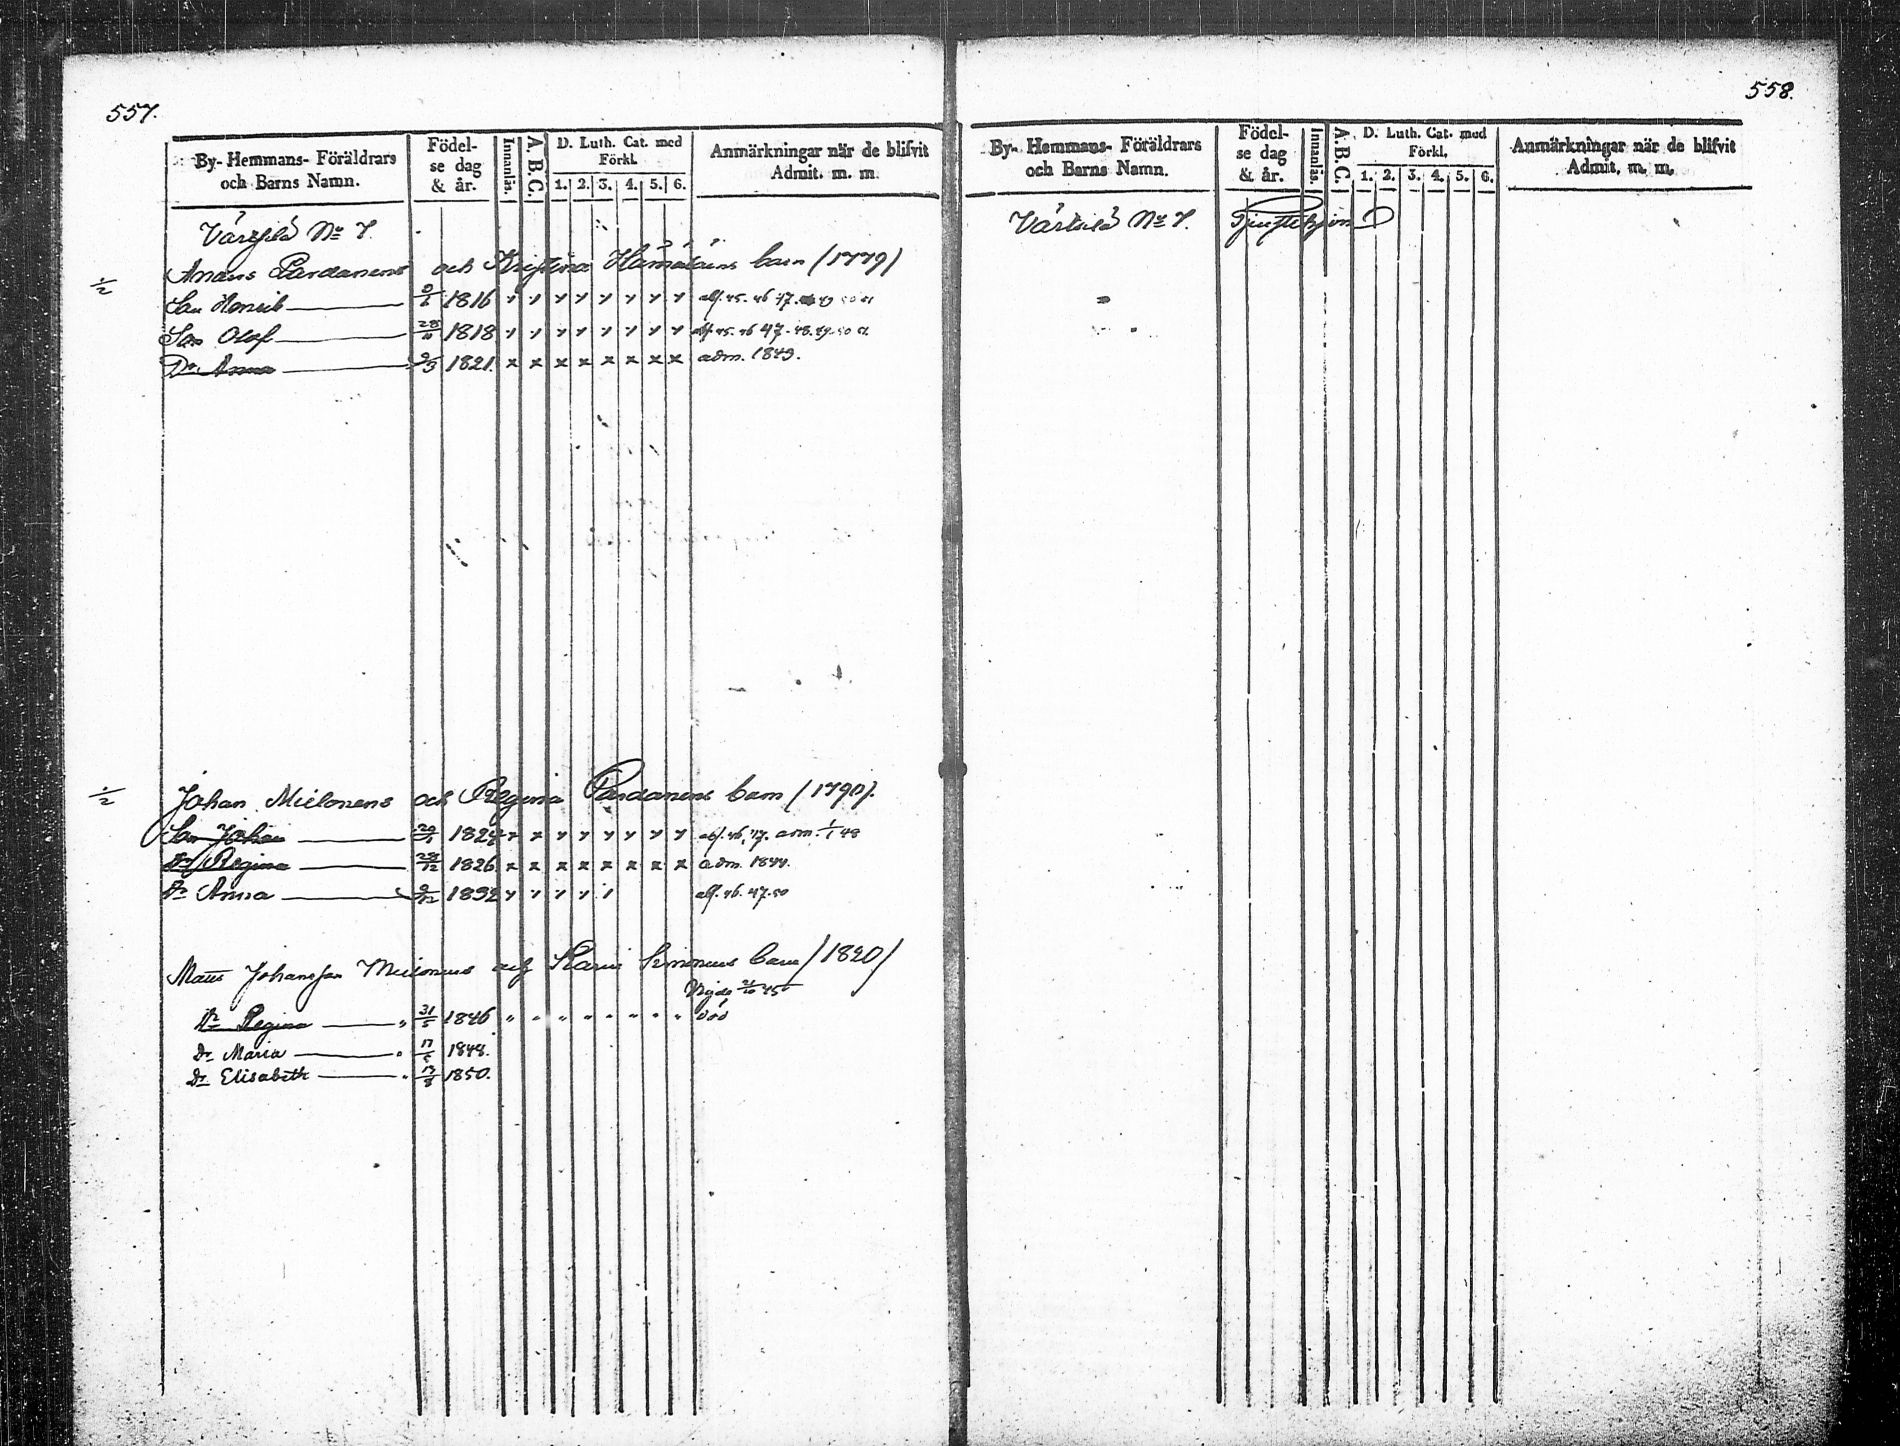 557.
By- Hemmans- Föräldrars och Barns Namn.
Födel- se dag & år.
Innanläs.
A. B. C.
D. Luth. Cat. med Förkl.
1. 2. 3. 4. 5. 6.
Anmärkningar när de blifvit Admit. m. m.
Värtsilä No 7.
Anders Pardanens och Kristina Hämäläins barn (1779)
1/2
Son Henrik 1816 y y y y y y y y abf. 45. 46 47. 49 50 51
Son Olof 28/10 1818 y y y y y y y y abf. 45. 46 47. 48. 49. 50 51
Dr Anna 1821. x x x x x x x x adm. 1843.
1/2
Johan Mielonens och Regina Pardanens barn (1790).
Son Johan 1824 x x y y y y y y abf. 46, 47. adm. 1/1 48
Dr Regina 28/12 1826 x x x x x x x x adm. 1844.
Dr Anna 1832 y y y y 1 abf. 46. 47. 50
Matts Johansson Mielonens och Karin Simonens barn (1820)
Vigde 45
Dr Regina " 31/5 1846 " " " " " " " " död
Dr Maria " 17 1848.
Dr Elisabeth " 13/8 1850.
558.
By- Hemmans- Föräldrars och Barns Namn.
Födel- se dag & år.
Innanläs.
A. B. C.
D. Luth. Cat. med Förkl.
1. 2. 3. 4. 5. 6.
Anmärkningar när de blifvit Admit. m. m.
Värtsilä No 7.